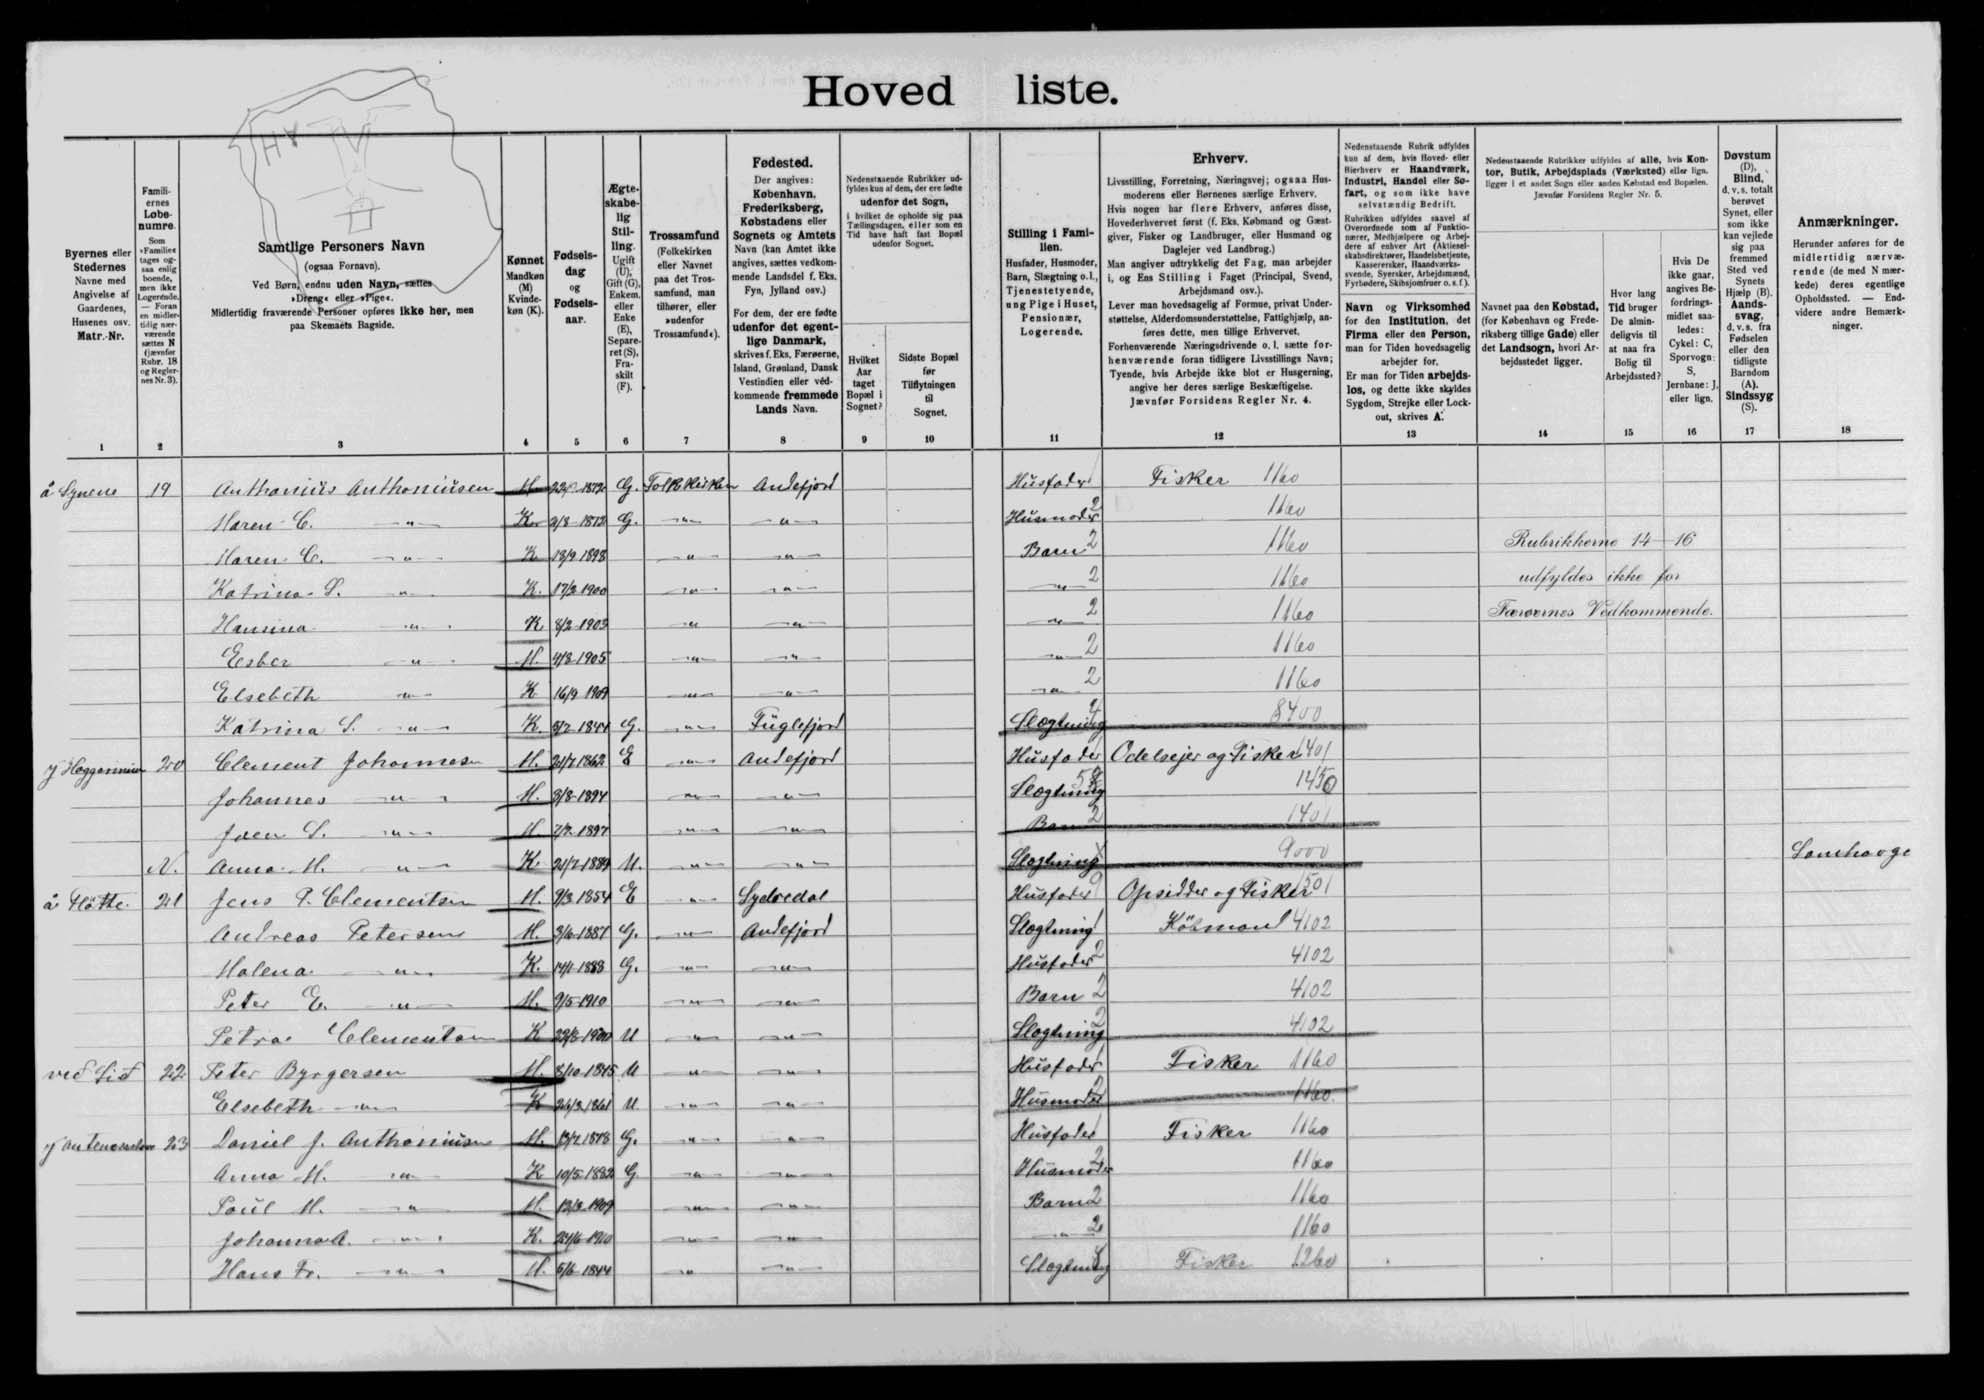 Hovedliste.
Byernes eller Stedernes Navne med Angivelse af Gaardenes, Husenes osv. Matr.-Nr.
Familiernes Løbenumre.
Som »Familie« tages ogsaa enlig boende, men ikke Logerende. — Foran en midlertidig nærværende sættes N (jævnfør Rubr. 18 og Reglernes Nr. 3).
Samtlige Personers Navn
(ogsaa Fornavn).
Ved Børn, endnu uden Navn, sættes
»Dreng« eller »Pige«.
Midlertidig fraværende Personer opføres ikke her, men
paa Skemaets Bagside.
Kønnet
Mandkøn (M) Kvindekøn (K).
Fødselsdag og Fødselsaar.
Ægteskabelig Stilling. Ugift (U), Gift (G), Enkem. eller Enke (E), Separeret (S), Fraskilt (F).
Trossamfund
(Folkekirken eller Navnet paa det Trossamfund, man tilhører, eller »udenfor Trossamfund«).
Fødested.
Der angives: København, Frederiksberg, Købstadens eller Sognets og Amtets Navn (kan Amtet ikke angives, sættes vedkommende Landsdel f. Eks. Fyn, Jylland osv.)
For dem, der ere fødte udenfor det egentlige Danmark, skrives f. Eks. Færøerne, Island, Grønland, Dansk Vestindien eller vedkommende fremmede Lands Navn.
Nedenstaaende Rubrikker udfyldes kun af dem, der ere fødte udenfor det Sogn, i hvilket de opholde sig paa Tællingsdagen, eller som en Tid have haft fast Bopæl udenfor Sognet.
Hvilket Aar taget Bopæl i Sognet?
Sidste Bopæl før Tilflytningen til Sognet.
Stilling i Familien.
Husfader, Husmoder, Barn, Slægtning o. l., Tjenestetyende, ung Pige i Huset, Pensionær, Logerende.
Erhverv.
Livsstilling, Forretning, Næringsvej; ogsaa Husmoderens eller Børnenes særlige Erhverv.
Hvis nogen har flere Erhverv, anføres disse, Hovederhvervet først (f. Eks. Købmand og Gæstgiver, Fisker og Landbruger, eller Husmand og Daglejer ved Landbrug.)
Man angiver udtrykkelig det Fag, man arbejder i, og Ens Stilling i Faget (Principal, Svend, Arbejdsmand osv.).
Lever man hovedsagelig af Formue, privat Understøttelse, Alderdomsunderstøttelse, Fattighjælp, anføres dette, men tillige Erhvervet.
Forhenværende Næringsdrivende o. l. sætte forhenværende foran tidligere Livsstillings Navn; Tyende, hvis Arbejde ikke blot er Husgerning, angive her deres særlige Beskæftigelse.
Jævnfør Forsidens Regler Nr. 4.
Nedenstaaende Rubrik udfyldes kun af dem, hvis Hoved- eller Bierhverv er Haandværk, Industri, Handel eller Søfart, og som ikke have selvstændig Bedrift.
Rubrikken udfyldes saavel af Overordnede som af Funktionærer, Medhjælpere og Arbejdere af enhver Art (Aktieselskabsdirektører, Handelsbetjente, Kasserersker, Haandværkssvende, Syersker, Arbejdsmænd, Fyrbødere, Skibsjomfruer o. s. f.).
Navn og Virksomhed for den Institution, det Firma eller den Person, man for Tiden hovedsagelig arbejder for.
Er man for Tiden arbejdsløs, og dette ikke skyldes Sygdom, Strejke eller Lockout, skrives A.
Nedenstaaende Rubrikker udfyldes af alle, hvis Kontor, Butik, Arbejdsplads (Værksted) eller lign. ligger i et andet Sogn eller anden Købstad end Bopælen.
Jævnfør Forsidens Regler Nr. 5.
Navnet paa den Købstad, (for København og Frederiksberg tillige Gade) eller det Landsogn, hvori Arbejdsstedet ligger.
Hvor lang Tid bruger De almindeligvis til at naa fra Bolig til Arbejdssted?
Hvis De ikke gaar, angives Befordringsmidlet saaledes: Cykel: C, Sporvogn: S, Jernbane: J, eller lign.
Døvstum (D), Blind, d. v. s. totalt berøvet Synet, eller som ikke kan vejlede sig paa fremmed Sted ved Synets Hjælp (B). Aandssvag, d. v. s. fra Fødselen eller den tidligste Barndom (A). Sindssyg (S).
Anmærkninger.
Herunder anføres for de midlertidig nærværende (de med N mærkede) deres egentlige Opholdssted. — Endvidere andre Bemærkninger.
1 2 3 4 5 6 7 8 9 10 11 12 13 14 15 16 17 18
19 Anthonius Anthoniusen M 1872 G. Folkekirken Andefjord Husfader 1 Fisker 1160
Maren C. —"— K. 2/8 1872 G. —"— —"— Husmoder 2 1160
Maren C. —"— K 13/9 1898 —"— —"— Barn 2 1160 Rubrikkerne 14–16
Katrina S. —"— K. 17/3 1900 —"— —"— —"— 2 1160 udfyldes ikke for
Hansina —"— K 8/2 1903 —"— —"— —"— 2 1160 Færøernes Vedkommende.
Esber —"— M. 4/8 1905 —"— —"— —"— 2 1160
Elsebeth —"— K 16/9 1909 —"— —"— —"— 2 1160
Katrina S. —"— K. 1844 G. —"— Fuglefjord Slægtning 8400
20 Clement Johannesen M. 21/7 1862 E —"— Andefjord Husfader Odelsejer og Fisker 1401
Johannes —"— M. 3/8 1894 —"— —"— Slægtning 1450
Joen S. —"— M 7/2 1897 —"— —"— Barn 2 1401
N. Anna M. —"— K. 21/7 1889 U. —"— —"— Slægtning 9000
21 Jens P. Clementsen M. 9/3 1854 E —"— Sydredal Husfader Opsidder og Fisker 1501
Andreas Petersen M. 3/6 1881 G. —"— Andefjord Slægtning 1 Købmand 4102
Malena —"— K. 14/1 1888 G. —"— —"— Husfader 2 4102
Peter E. —"— M. 9/5 1910 —"— —"— Barn 2 4102
Petra Clementsen K 1900 U —"— —"— Slægtning 2 4102
ved Lid 22 Peter Byrgersen M. 8/10 1845 U —"— —"— Husfader 1 Fisker 1160
Elsebeth —"— K 26/3 1861 U —"— —"— Husmoder 2 1160
23 Daniel J. Anthoniusen M. 13/7 1878 G. —"— —"— Husfader 1 Fisker 1160
Anna M. —"— K 10/5 1882 G —"— —"— Husmoder 2 1160
Poul M. —"— M. 13/3 1909 —"— —"— Barn 2 1160
Johanna A. —"— K. 24/6 1910 —"— —"— —"— 2 1160
Hans Fr. —"— M. 5/6 1844 —"— —"— Slægtning Fisker 1260